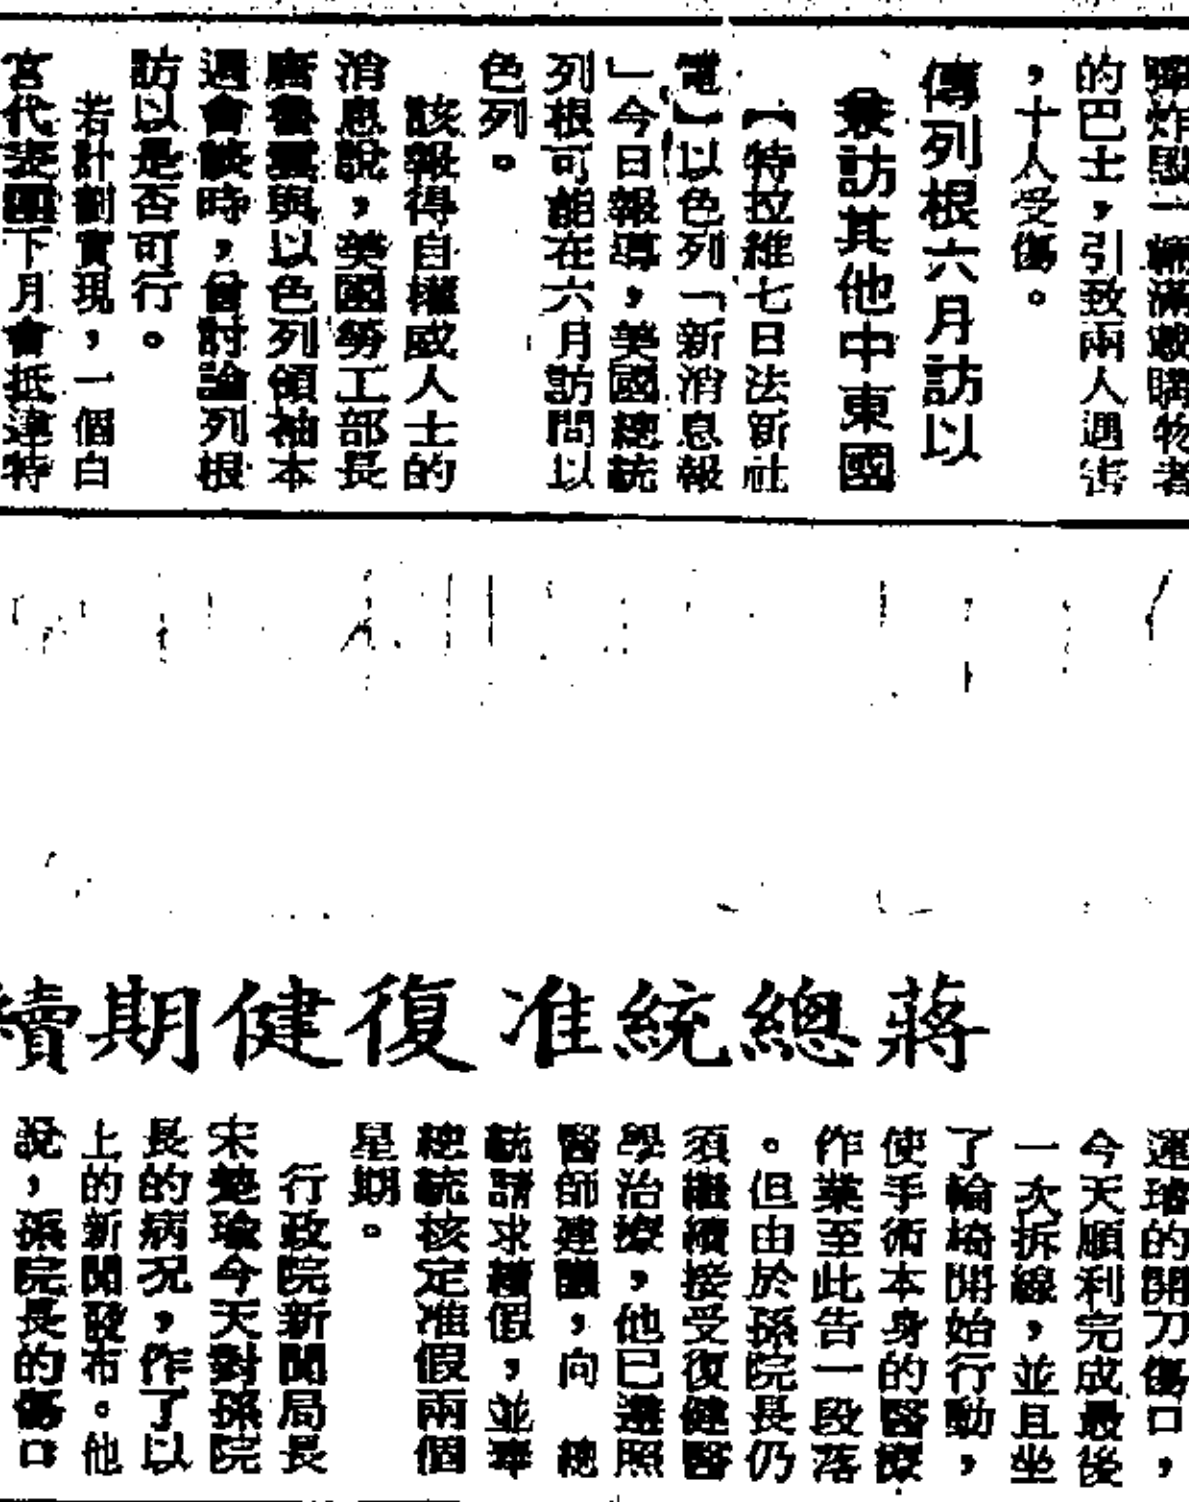 彈炸毀一輛滿載購物者
的巴士，引致兩人遇害
，十人受傷。
傳列根六月訪以
兼訪其他中東國
【特拉維七日法新社
電】以色列「新消息報
」今日報導，美國總統
列根可能在六月訪問以
色列。
該報得自權威人士的
消息說，美國勞工部長
唐魯雲與以色列領袖本
週會談時，曾討論列根
訪以是否可行。
若計劃實現，一個白
宮代表團下月會抵達特
蔣總統准復健期續
運璿的開刀傷口，
今天順利完成最後
一次拆線，並且坐
了輪椅開始行動，
使手術本身的醫療
作業至此告一段落
。但由於孫院長仍
須繼續接受復健醫
學治療，他已遵照
醫師建議，向 總
統請求續假，並奉
總統核定准假兩個
星期。
行政院新聞局長
宋楚瑜今天對孫院
長的病況，作了以
上的新聞發布。他
說，孫院長的傷口